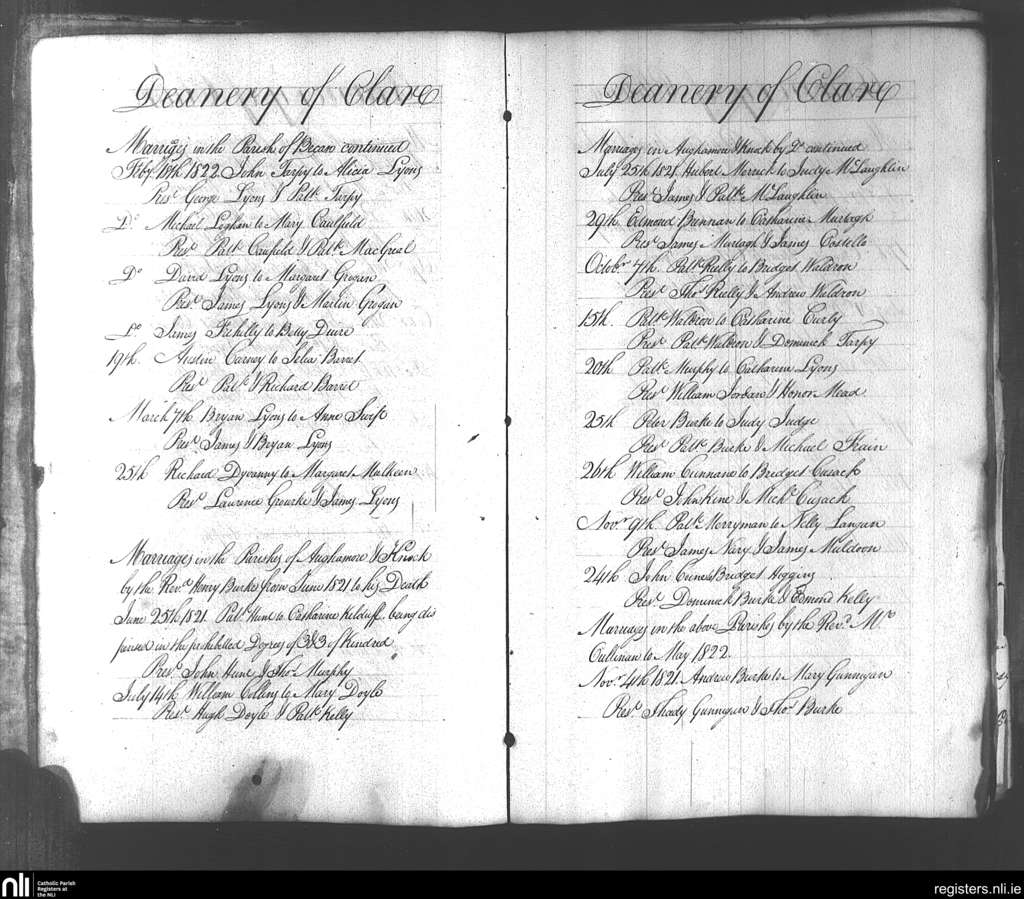 Deanery of Clare
Marriages in the Parish of Becan continued
Feby 18th 1822 John Tarpy to Alicia Lyons
Prest George Lyons & Patk Tarpy
Do Michael Loghan to Mary Caulfield
Prest Patk Caufield & Patk MacGreal
Do David Lyons to Margaret Grogan
Prest James Lyons & Martin Grogan
Do James to Betty
19th. Austin Carney to Celia Barret
Prest Patk & Richard Barret
March 7th Bryan Lyons to Anne Swift
Prest James & Bryan Lyons
25th Richard to Margaret Mulkeen
Prest Laurence Grourke & James Lyons
Marriages in the Parishes of Aughamore & Knock
by the Revd Henry Burke from June 1821 to his Death
June 25th 1821. Patk Hunt to Catharine Kilduff being dis
pensed in the prohibited Degrees of 3&3 of Kindred
Prest John Hunt & Thos Murphy
July 14th William Collins to Mary Doyle
Prest Hugh Doyle & Patk Kelly
Deanery of Clare
Marriages in Aughamore & Knock by Do continued
July 25th 1821 Hubert Merrick to Judy McLaughlin
Prest James & Patk McLaughlin
29th Edmond Brennan to Catharine Murtagh
Prest James Murtagh & James Costello
Octobr 7th. Patk Rielly to Bridget Waldron
Prest Thos Rielly & Andrew Waldron
15th. Patk Waldron to Catharine Curly
Prest Patk Waldron & Dominick Tarpy
20th Patk Murphy to Catharine Lyons
Prest William Jordan & Honor Mead
25th Peter Burke to Judy Judge
Prest Patk Burke & Michael Frain
26th William Cunnane to Bridget Cusack
Prest John Kine & Michl Cusack
Novr 9th. Patk Merryman to Nelly Langan
Prest James Nary & James Muldoon
24th John Bridget Higgins
Prest Dominick Burke & Edmond Kelly
Marriages in the above Parishes by the Revd Mr
Cullinan to May 1822.
Novr 4th 1821 Andrew Burke to Mary Gunnigan
Prest Thady Gunnigan & Thos Burke
nli
Catholic Parish
Registers at
the NLI
registers.nli.ie